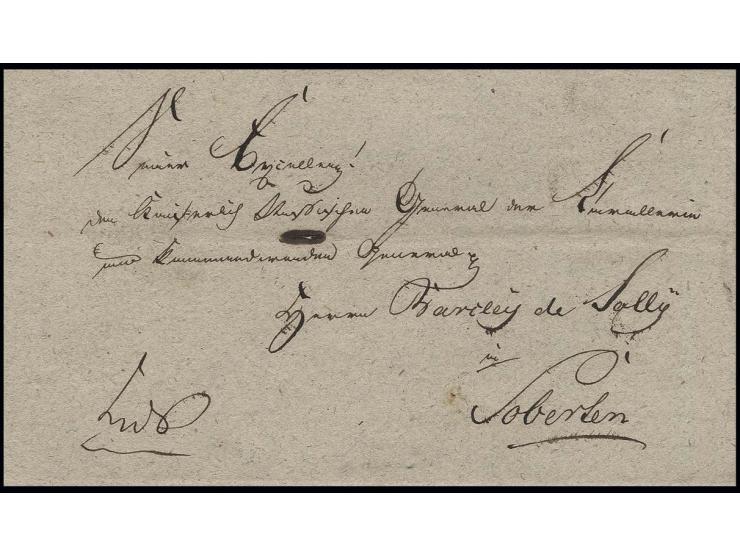 Seiner Excellenz!
den Kaiserlich Russischen General der Kavallerie
und Kommandirenden General
Herrn Barcley de Tolly
in
Soberten